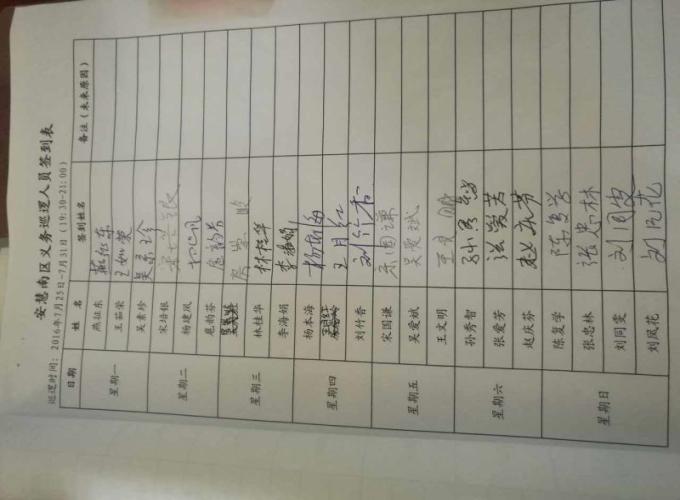 安慧南区义务巡逻人员签到表
巡逻时间：2016年7月25日-7月31日（19:30-21:00）
日期 姓名 签到姓名 备注（未来原因）
星期一 燕征东 燕征东
王茹荣 王茹荣
吴素珍 吴素珍
星期二 宋培银
杨建凤
星期三 扈韵芬
林桂华 林桂华
李海娟 李海娟
星期四 杨本海 杨本海
王月红
刘竹香 刘竹香
星期五 宋国谦 宋国谦
吴爱斌 吴爱斌
王文明 王文明
星期六 孙秀智 孙秀智
张爱芳 张爱芳
赵庆芬 赵庆芬
星期日 陈复学 陈复学
张忠林 张忠林
刘同雯 刘同雯
刘凤花 刘凤花